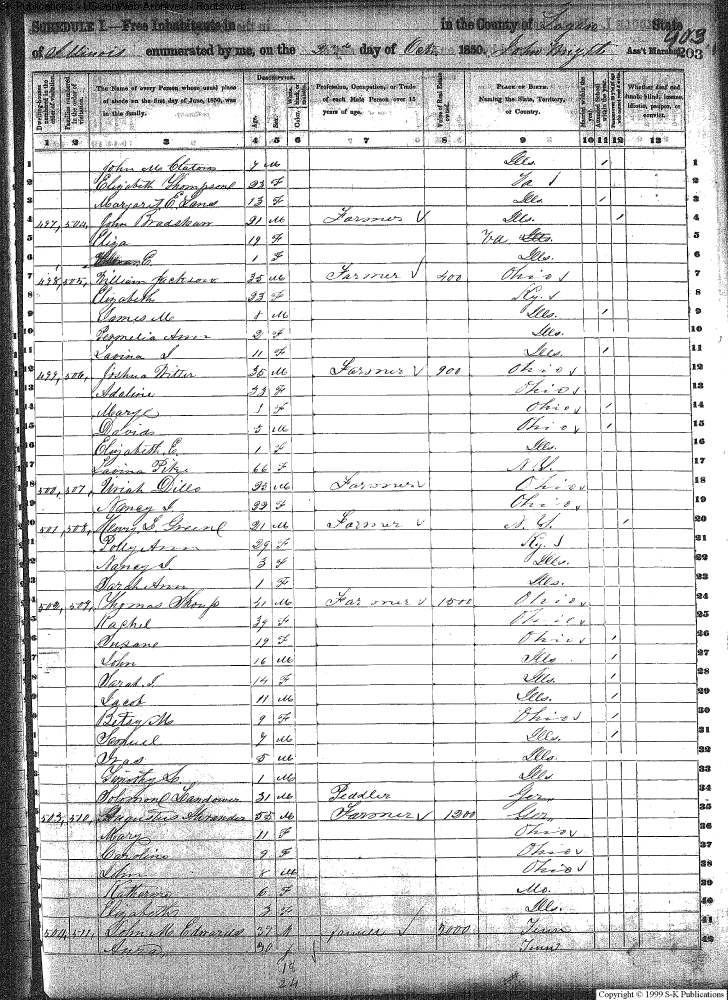 S-K Publications - USGenWeb Archives - Rootsweb
SCHEDULE I.—Free Inhabitants in in the County of Logan State
of Illinois enumerated by me, on the day of Oct 1850. John Wright Ass't Marshal. 403
203
Dwelling-houses numbered in the order of visitation.
Families numbered in the order of visitation.
The Name of every Person whose usual place of abode on the first day of June, 1850, was in this family.
Description.
Age.
Sex.
Color, White, black, or mulatto.
Profession, Occupation, or Trade of each Male Person over 15 years of age.
Value of Real Estate owned.
Place of Birth. Naming the State, Territory, or Country.
Married within the year.
Attended School within the year.
Persons over 20 y'rs of age who cannot read & write.
Whether deaf and dumb, blind, insane, idiotic, pauper, or convict.
1 2 3 4 5 6 7 8 9 10 11 12 13
1 John M 7 M Ills. / 1
2 Elizabeth Thompson 23 F 2
3 Margaret E. 13 F Ills. / 3
4 497, 504, John Bradshaw 21 M Farmer Ills. / 4
5 Eliza 19 F Va Ills. 5
6 1 F Ills. 6
7 498, 505, William Jackson 35 M Farmer 400 Ohio 7
8 Elizabeth 33 F Ky. 8
9 James M 8 M Ills. / 9
10 Permelia Ann 2 F Ills. 10
11 Lavina J 11 F Ills. / 11
12 499, 506, Joshua Witter 35 M Farmer 900 Ohio 12
13 Adaline 33 F Ohio 13
14 Mary F Ohio / 14
15 David 5 M Ohio / 15
16 Elizabeth E. 1 F Ills. 16
17 Lavina Pike 66 F N.Y. 17
18 500, 507, Uriah Dills 25 M Farmer Ohio 18
19 Nancy J 22 F Ohio 19
20 501, 508, Henry L Greene 21 M Farmer / 20
21 Polly Ann 29 F Ky. 21
22 Nancy J 3 F Ills. 22
23 Sarah Ann 1 F Ills. 23
24 502, 509, Thomas Shoup 41 M Farmer 1500 Ohio 24
25 Rachel 39 F Ohio 25
26 Susane 19 F Ohio / 26
27 John 16 M Ills / 27
28 Sarah J 14 F Ills. / 28
29 Jacob 11 M Ills. / 29
30 Betsy M 9 F Ohio / 30
31 Samuel 7 M Ills. / 31
32 Iras 5 M Ills. 32
33 Timothy L 1 M Ills 33
34 Solomon Landower 31 M Peddler Ger. 34
35 503, 510, Augustus 55 M Farmer 1200 Ger. 35
36 Mary 11 F Ohio 36
37 Caroline 9 F Ohio 37
38 John 8 M Ohio 38
39 Katherine 6 F Mo. 39
40 Elizabeth 3 F Ills. 40
41 504, 511, John M Edwards 37 2000 Tenn 41
42 30 Tenn 42
18
24
Copyright © 1999 S-K Publications